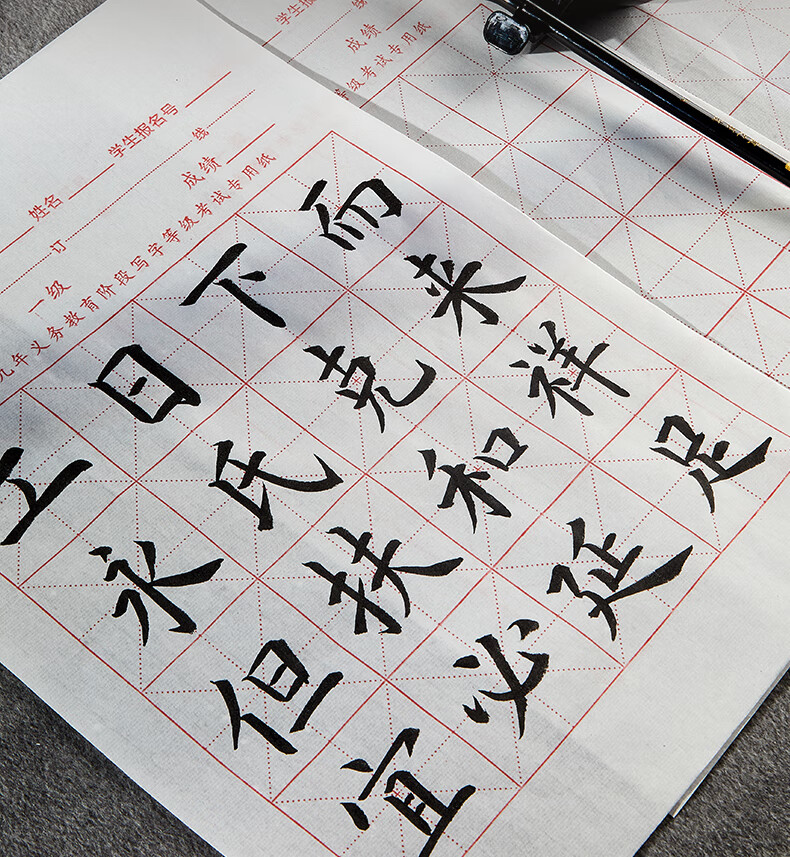 姓名 学生报名号
订 线
一级 成绩
九年义务教育阶段写字等级考试专用纸
日下而
永氏克来
但扶和祥
宜必延足
学生报名号
线
成绩
等级考试专用纸